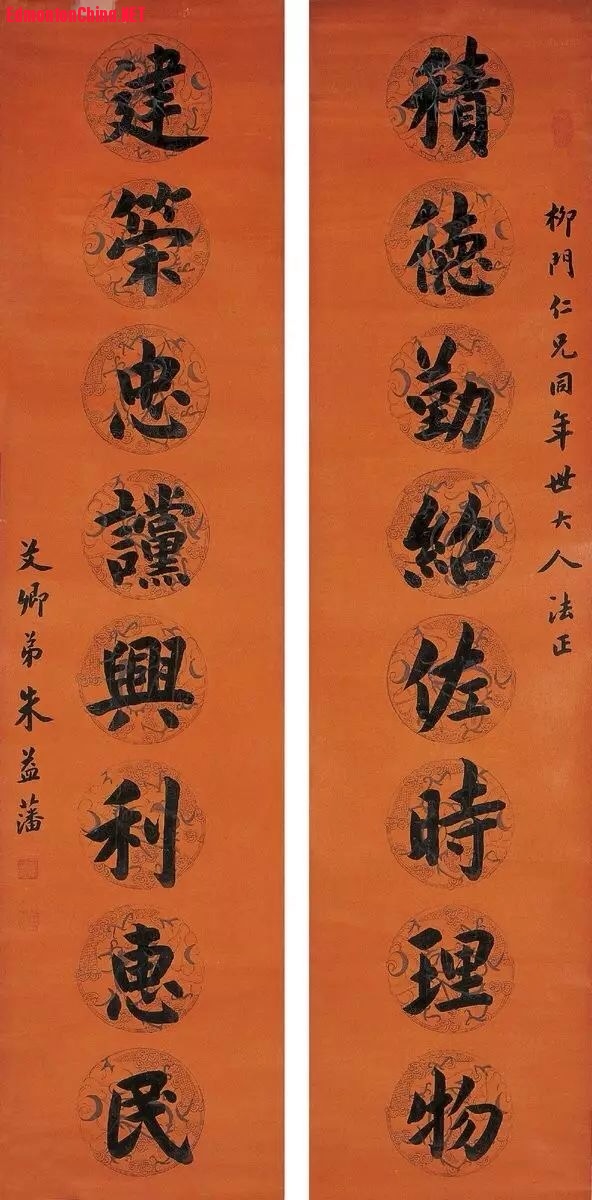 EdmontonChina.NET
柳門仁兄同年世大人法正
積德勤紹佐時理物
建策忠讜興利惠民
艾卿弟朱益藩